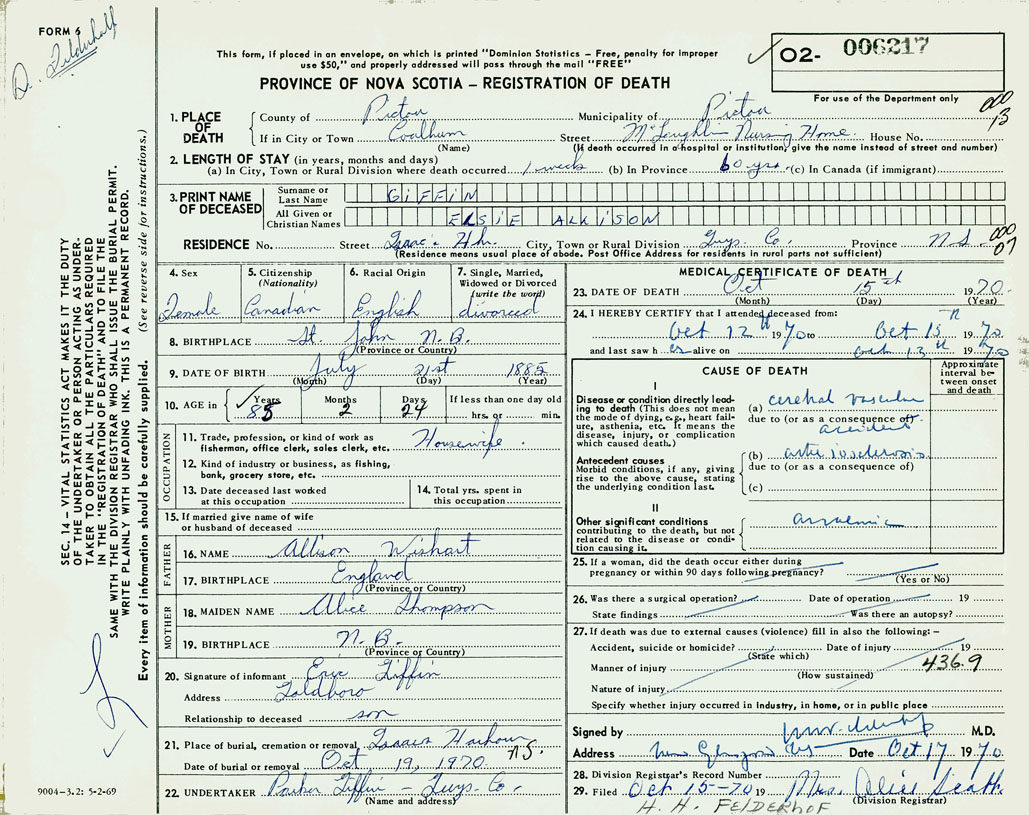 FORM 6
D. Felderhof
This form, if placed in an envelope, on which is printed "Dominion Statistics – Free, penalty for improper
use $50," and properly addressed will pass through the mail "FREE"
PROVINCE OF NOVA SCOTIA – REGISTRATION OF DEATH
O2- 006217
For use of the Department only
000
13
1. PLACE OF DEATH
County of Pictou Municipality of Pictou
If in City or Town Coalburn Street McLoughlin Nursing Home House No.
(Name) (If death occurred in a hospital or institution, give the name instead of street and number)
2. LENGTH OF STAY (in years, months and days)
(a) In City, Town or Rural Division where death occurred 1 week (b) In Province 60 yrs. (c) In Canada (if immigrant)
3. PRINT NAME OF DECEASED
Surname or Last Name GIFFIN
All Given or Christian Names ELSIE ALKISON
RESIDENCE No. Street Isaac's Hbr. City, Town or Rural Division Guys. Co. Province N.S.
(Residence means usual place of abode. Post Office Address for residents in rural parts not sufficient)
000
07
4. Sex
Female
5. Citizenship
(Nationality)
Canadian
6. Racial Origin
English
7. Single, Married,
Widowed or Divorced
(write the word)
divorced
8. BIRTHPLACE St. John N.B.
(Province or Country)
9. DATE OF BIRTH July 21st 1885
(Month) (Day) (Year)
10. AGE in Years Months Days If less than one day old
85 2 24 hrs. or min.
OCCUPATION
11. Trade, profession, or kind of work as
fisherman, office clerk, sales clerk, etc. Housewife.
12. Kind of industry or business, as fishing,
bank, grocery store, etc.
13. Date deceased last worked
at this occupation
14. Total yrs. spent in
this occupation
15. If married give name of wife
or husband of deceased
FATHER
16. NAME Allison Wishart
17. BIRTHPLACE England
(Province or Country)
MOTHER
18. MAIDEN NAME Alice Thompson
19. BIRTHPLACE N.B.
(Province or Country)
20. Signature of informant Eric Giffin
Address Goldboro
Relationship to deceased son
21. Place of burial, cremation or removal Isaacs Harbour N.S.
Date of burial or removal Oct 19, 1970
22. UNDERTAKER Parker Giffin – Guys. Co.
(Name and address)
MEDICAL CERTIFICATE OF DEATH
23. DATE OF DEATH Oct 15th 1970.
(Month) (Day) (Year)
24. I HEREBY CERTIFY that I attended deceased from:
Oct 12th 1970 to Oct 15th 1970
and last saw h er alive on Oct 13th 1970
CAUSE OF DEATH
Approximate
interval be-
tween onset
and death
I
Disease or condition directly lead-
ing to death (This does not mean
the mode of dying, e.g., heart fail-
ure, asthenia, etc. It means the
disease, injury, or complication
which caused death.)
(a) cerebral vascular
due to (or as a consequence of)
accident
Antecedent causes
Morbid conditions, if any, giving
rise to the above cause, stating
the underlying condition last.
(b) arteriosclerosis
due to (or as a consequence of)
(c)
II
Other significant conditions
contributing to the death, but not
related to the disease or condi-
tion causing it.
anaemia
25. If a woman, did the death occur either during
pregnancy or within 90 days following pregnancy?
(Yes or No)
26. Was there a surgical operation? Date of operation 19
State findings Was there an autopsy?
27. If death was due to external causes (violence) fill in also the following: –
Accident, suicide or homicide? Date of injury 19
(State which)
Manner of injury 436.9
(How sustained)
Nature of injury
Specify whether injury occurred in industry, in home, or in public place
Signed by M.D.
Address New Glasgow NS Date Oct 17 1970
28. Division Registrar's Record Number
29. Filed Oct 15-70 19 Mrs. Alice Scott.
(Division Registrar)
H. H. FELDERHOF
SEC. 14 – VITAL STATISTICS ACT MAKES IT THE DUTY
OF THE UNDERTAKER OR PERSON ACTING AS UNDER-
TAKER TO OBTAIN ALL THE PARTICULARS REQUIRED
IN THE "REGISTRATION OF DEATH" AND TO FILE THE
SAME WITH THE DIVISION REGISTRAR WHO SHALL ISSUE THE BURIAL PERMIT.
WRITE PLAINLY WITH UNFADING INK. THIS IS A PERMANENT RECORD.
Every item of information should be carefully supplied. (See reverse side for instructions.)
9004-3.2: 5-2-69